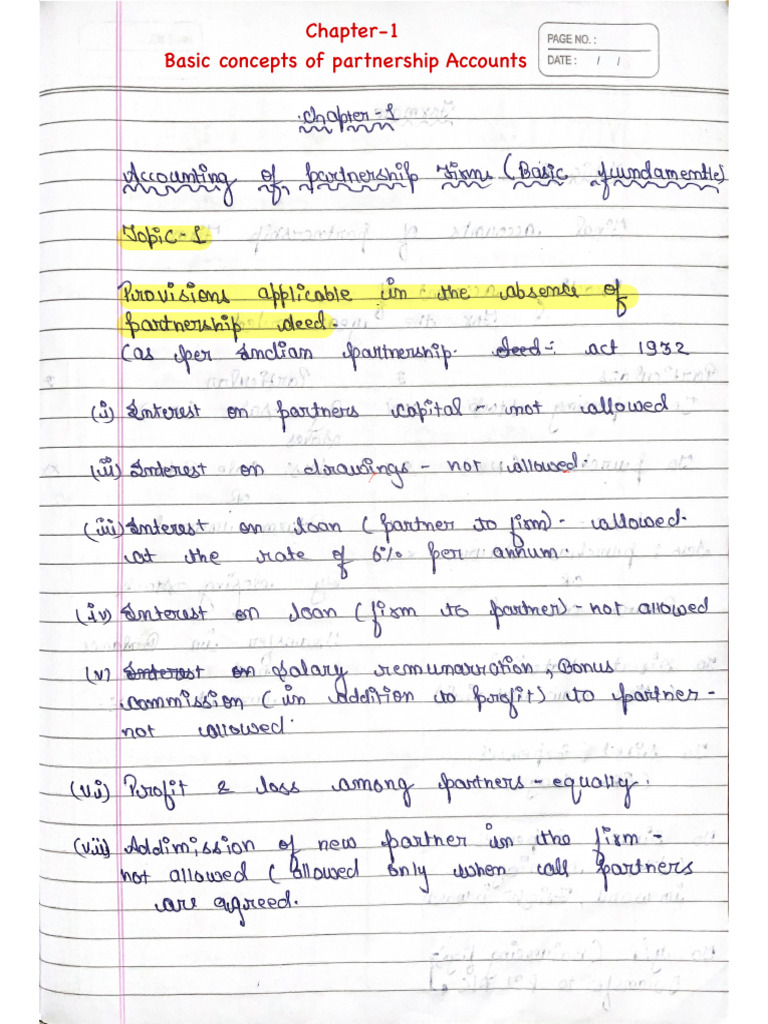 Chapter-1
Basic concepts of partnership Accounts
PAGE NO. :
DATE : / /
Chapter-1
Accounting of partnership Firms (Basic fundamentle)
Topic-1
Provisions applicable in the absence of
partnership deed.
(as per Indian partnership deed: act 1932
(i) Interest on partners capital - not allowed
(ii) Interest on drawings - not allowed.
(iii) Interest on loan (partner to firm) - allowed.
at the rate of 6% per annum.
(iv) Interest on loan (firm to partner) - not allowed
(v) Interest on Salary remunarration, Bonus
commission (in addition to profit) to partner -
not allowed.
(vi) Profit & loss among partners - equally.
(vii) Addimission of new partner in the firm -
not allowed (allowed only when all partners
are agreed.